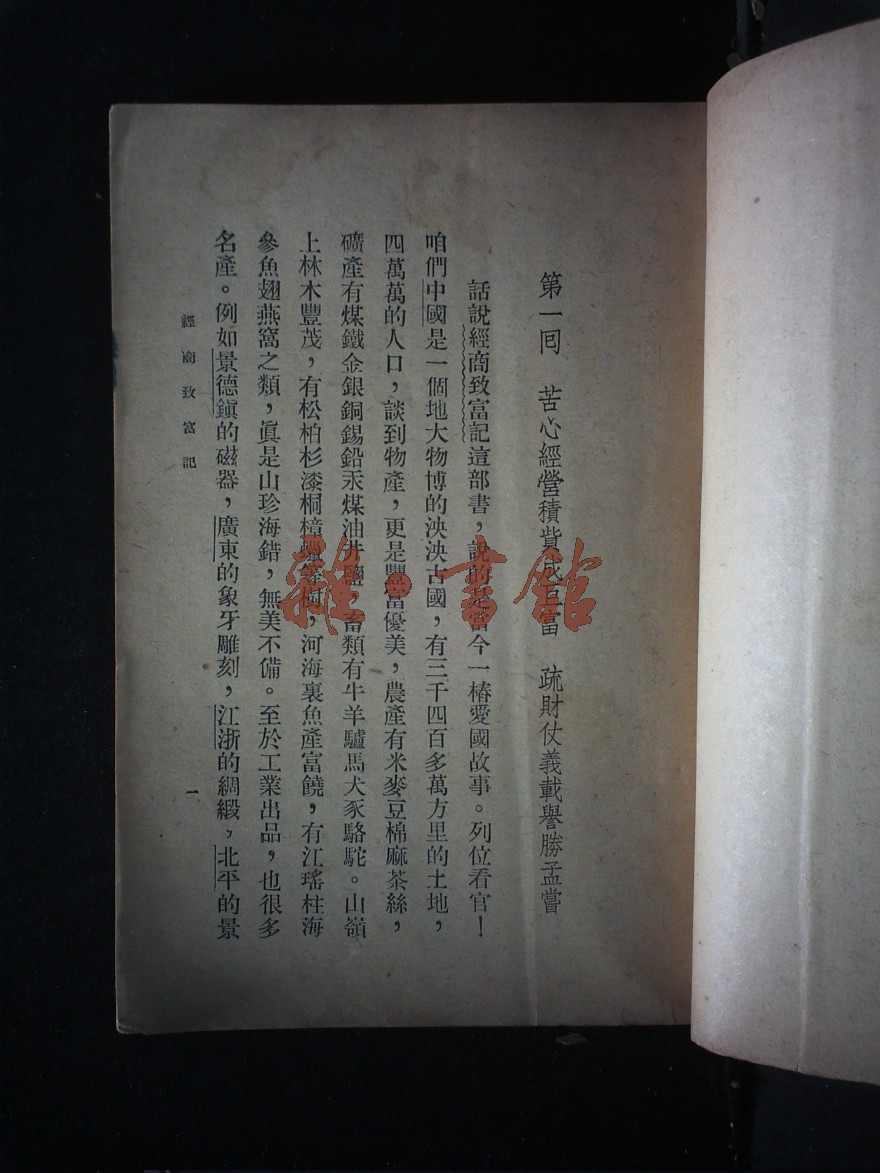 第一回　苦心經營積貲成巨富　疏財仗義載譽勝孟嘗
話說經商致富記這部書，說的是當今一樁愛國故事。列位看官！
咱們中國是一個地大物博的泱泱古國，有三千四百多萬方里的土地，
四萬萬的人口，談到物產，更是豐富優美，農產有米麥豆棉麻茶絲，
礦產有煤鐵金銀銅錫鉛汞煤油井鹽，畜類有牛羊驢馬犬豕駱駝。山嶺
上林木豐茂，有松柏杉漆桐樟蠟等樹，河海裏魚產富饒，有江瑤柱海
參魚翅燕窩之類，眞是山珍海錯，無美不備。至於工業出品，也很多
名產。例如景德鎮的磁器，廣東的象牙雕刻，江浙的綢緞，北平的景
經商致富記
一
雜·書館